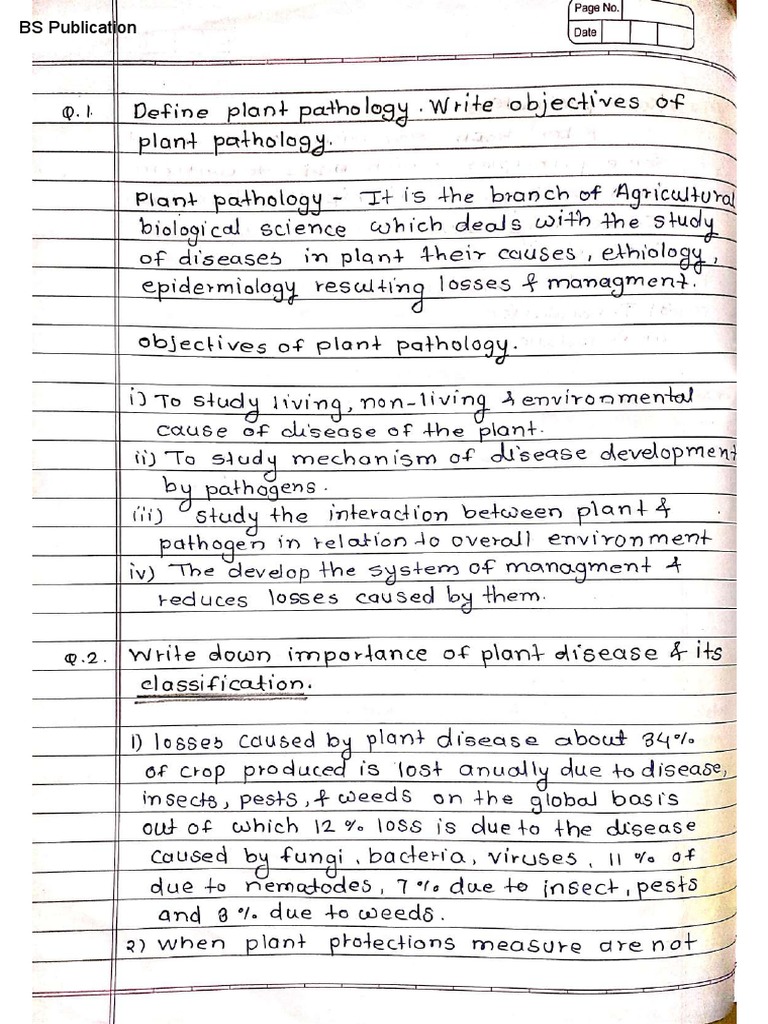 BS Publication
Page No.
Date
Q.1. Define plant pathology. Write objectives of
plant pathology.
Plant pathology - It is the branch of Agricultural
biological science which deals with the study
of diseases in plant their causes, ethiology,
epidermiology resulting losses & managment.
objectives of plant pathology.
i) To study living, non-living & environmental
cause of disease of the plant.
ii) To study mechanism of disease development
by pathogens.
iii) study the interaction between plant &
pathogen in relation to overall environment
iv) The develop the system of managment &
reduces losses caused by them.
Q.2. Write down importance of plant disease & its
classification.
1) losses caused by plant disease about 34%
of crop produced is lost anually due to disease,
insects, pests, & weeds on the global basis
out of which 12% loss is due to the disease
caused by fungi, bacteria, viruses, 11% of
due to nematodes, 7% due to insect, pests
and 3% due to weeds.
2) When plant protections measure are not